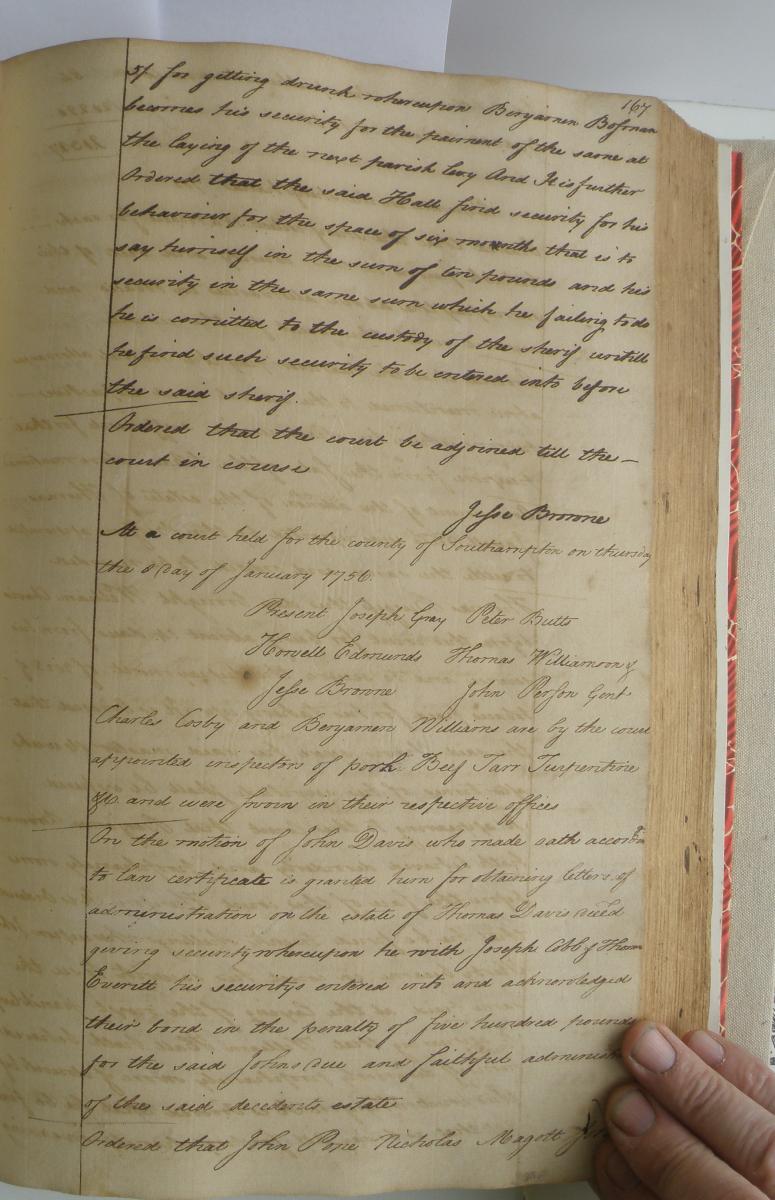 167
5/ for getting drunk whereupon Benjamen Bosman
becomes his security for the paiment of the same at
the laying of the next parish levy And It is further
Ordered that the said Hall find security for his
behaviour for the space of six months that is to
say himself in the sum of ten pounds and his
security in the same sum which he failing to do
he is comitted to the custody of the sherif untill
he find such security to be entered into before
the said sherif.
Ordered that the court be adjoined till the
court in course
Jesse Browne
At a court held for the county of Southampton on thursday
the 8 day of January 1756.
Present Joseph Gray Peter Butts
Howell Edmunds Thomas Williamson &
Jesse Browne John Person Gent
Charles Cosby and Benjamen Williams are by the court
appointed inspectors of pork Beef Tarr Turpentine
&c. and were sworn in their respective offices
On the motion of John Davis who made oath accordin
to law certificate is granted him for obtaining letters of
administration on the estate of Thomas Davis deced
giving security whereupon he with Joseph Cobb & Thom
Everitt his securitys entered into and acknowledged
their bond in the penalty of five hundred pounds
for the said Johns due and faithful administ
of the said decedents estate
Ordered that John Pope Nicholas Magott